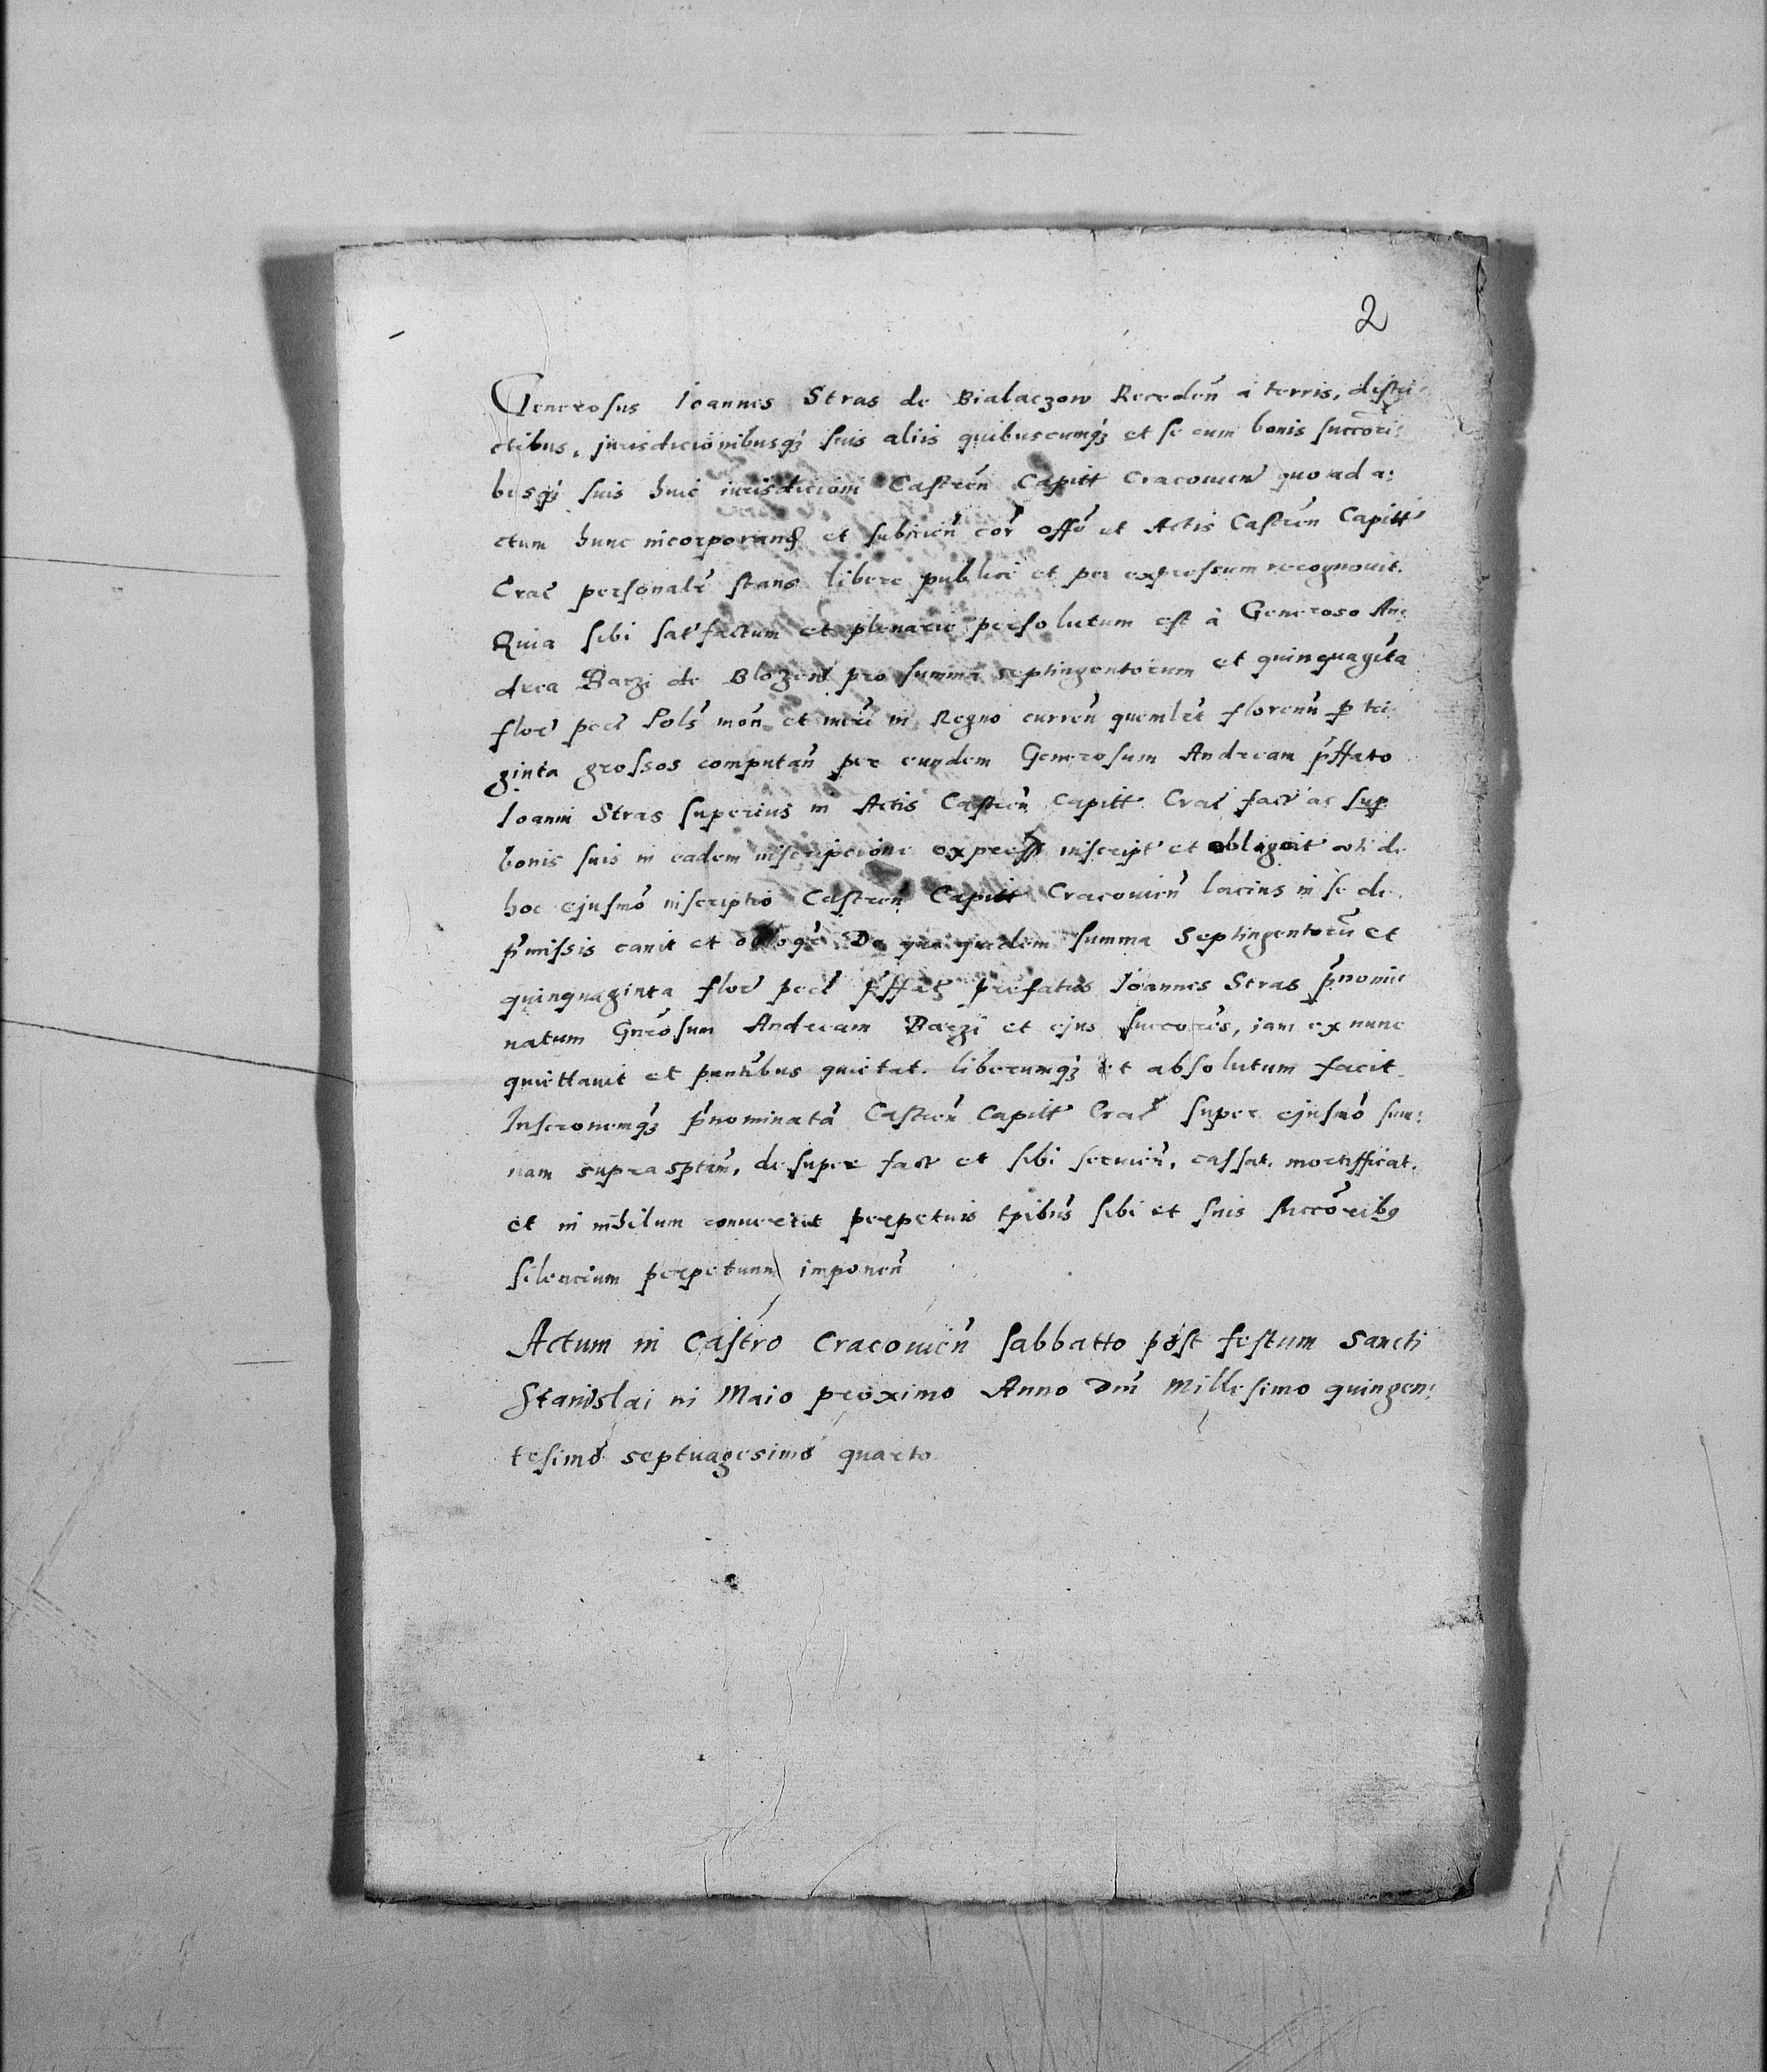 2
Generosus Ioannes Stras de Bialaczow Receden̄ a terris, distri-
ctibus, jurisdicionibusq3 suis aliis quibuscumq3 et se cum bonis succori:
busq3 suis huic iurisdicioni Castren̄ Capitt Cracouien̄ quo ad a:
ctum hunc incorporan̄ et subiicien̄ cor̄ offō et Actis Castren̄ Capitt
Crac̄ personalr̄ stans libere publice et per expressum recognouit.
Quia sibi sat'factum et plenarie persolutum est à Generoso An:
drea Barzi de Blozew pro summa septingentorum et quinquagīta
flor̄ pecc̄ Pols̄ mon̄ et nūi in Regno curren̄ quemlēt florenū p tri
ginta grossos computan̄ per eundem Generosum Andream p̄ffato
Ioanni Stras superius in Actis Castren̄ Capitt Crac̄ fact̄ ac sup
bonis suis in eadem inscripcione express inscript' et obligat' vti de
hoc ejusmō inscriptio Castren̄ Capitt Cracouien̄ lacius in se de
p̄missis canit et De qua quidem summa Septingentorū et
quinquaginta flor̄ pecc̄ prefatus Ioannes Stras p̄nomi:
natum Gn̄rosum Andream Barzi et ejus succores, iam ex nunc
quiettauit et pn̄tibus quietat. liberumq3 et absolutum facit
Inscronemq3 p̄nominatā Castren̄ Capitt Crac̄ super ejusmō sum:
mam suprasptam̄, desuper fact̄ et sibi seruien̄, cassat. mortifficat.
et in nihilum conuertit perpetuis tpibus̄ sibi et suis succōribq
silencium perpetuum imponen̄
Actum in Castro Cracouien̄ sabbatto post festum Sancti
Stanislai in Maio proximo Anno Dn̄i Millesimo quingen:
tesimo septuagesimo quarto